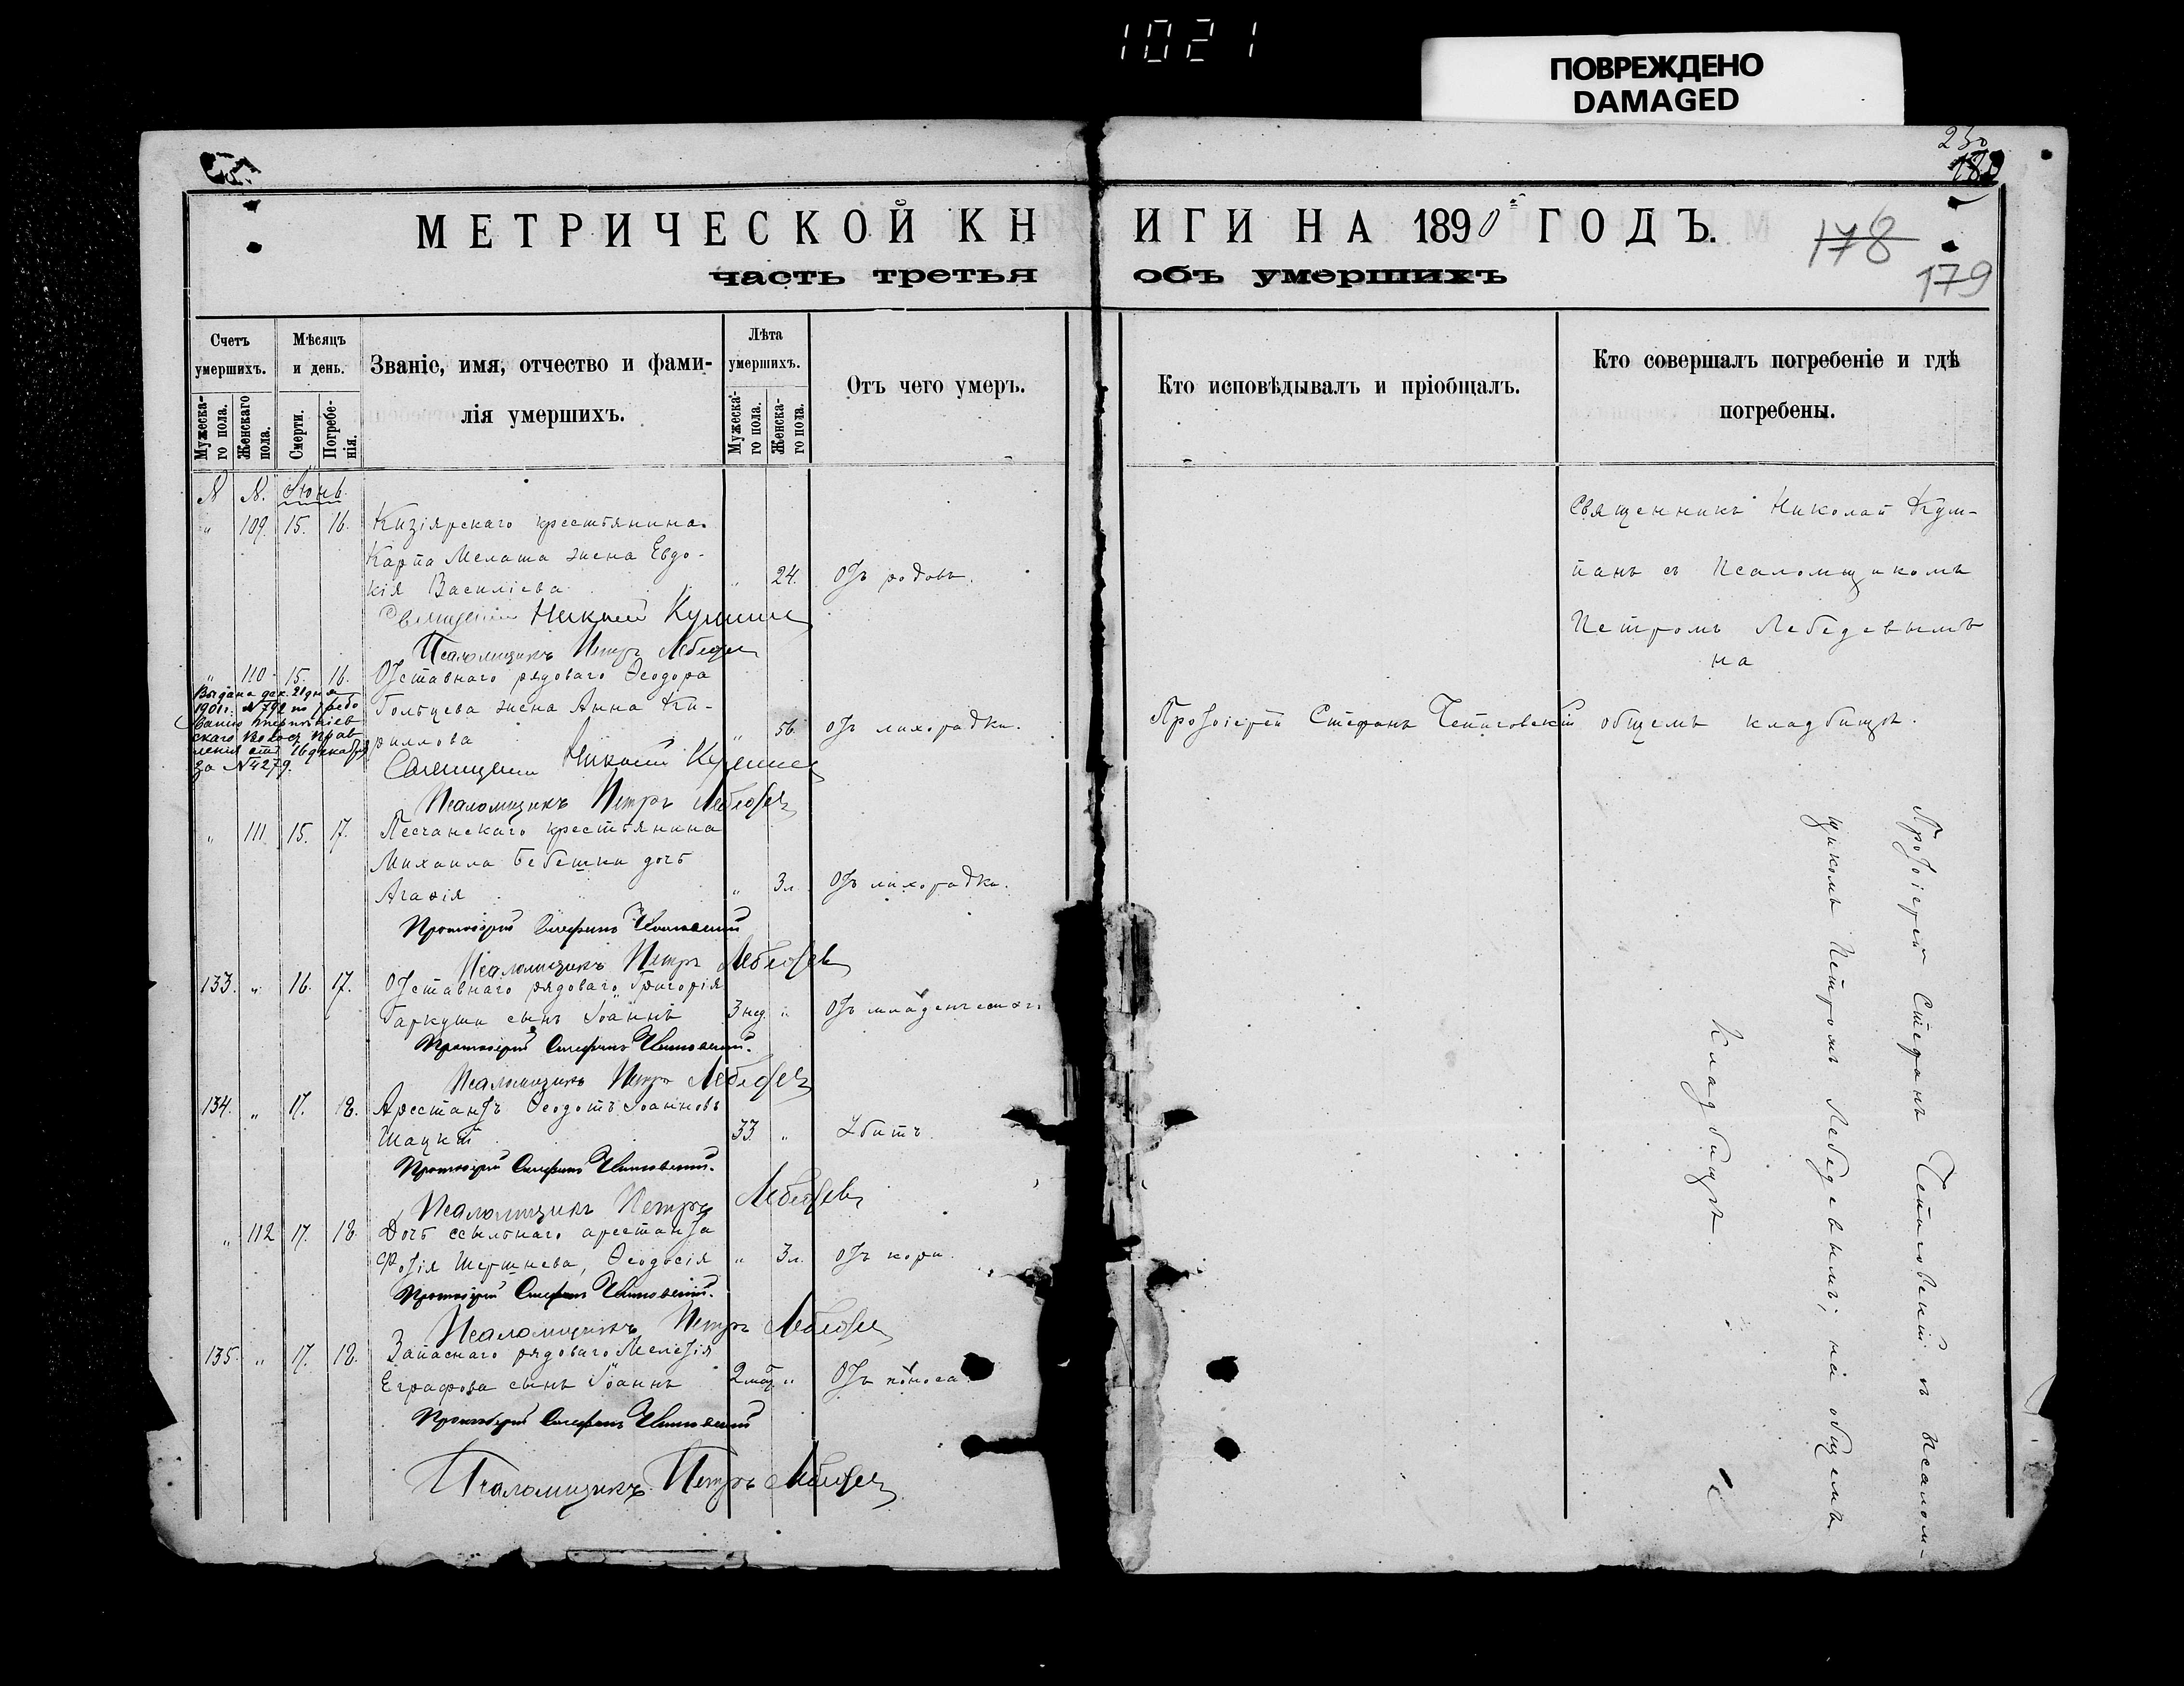 1021
ПОВРЕЖДЕНО
DAMAGED
230
МЕТРИЧЕСКОЙ КНИГИ НА 1890 ГОДЪ.
178
179
часть третья объ умершихъ
Счетъ умершихъ.
Мужескаго пола.
Женскаго пола.
Мѣсяцъ и день.
Смерти.
Погребенія.
Званіе, имя, отчество и фамилія умершихъ.
Лѣта умершихъ.
Мужескаго пола.
Женскаго пола.
Отъ чего умеръ.
Кто исповѣдывалъ и пріобщалъ.
Кто совершалъ погребеніе и гдѣ погребены.
№ №. Іюнь.
" 109. 15. 16. Кизіярскаго крестьянина
Карпа Мелаша жена Евдо-
кія Василіева " 24. Отъ родовъ.
Священникъ Николай
Псаломщикъ Петръ Лебедевъ
Священникъ Николай
съ Псаломщикомъ
Петромъ Лебедевымъ
на
общемъ кладбищѣ.
" 110 15. 16. Отставнаго рядоваго Ѳеодора
Гольцева жена Анна Ки-
риллова " 56 Отъ лихорадки. Протоіерей Стефанъ
Выдана 21 дня
1901 г. № 792 по требо
ванію
скаго волос. прав
ленія отъ 16 декабря
за № 4279.
Священникъ Николай
Псаломщикъ Петръ Лебедевъ
" 111 15. 17. Песчанскаго крестьянина
Михаила Бебешки дочь
Агафія " 3 л. Отъ лихорадки.
Протоіерей Стефанъ
Псаломщикъ Петръ Лебедевъ
133. " 16. 17. Отставнаго рядоваго Григорія
Гаркуши сынъ Іоаннъ 3 нед. " Отъ младенческой
Протоіерей Стефанъ
Псаломщикъ Петръ Лебедевъ
134. " 17. 18. Арестантъ Ѳеодотъ Іоанновъ
Шацкій 33. " Убитъ.
Протоіерей Стефанъ
Псаломщикъ Петръ Лебедевъ
" 112 17. 18. Дочь ссыльнаго арестанта
Фотія Шершнева, Ѳеодосія " 3 л. Отъ кори.
Протоіерей Стефанъ
Псаломщикъ Петръ Лебедевъ
135. " 17. 18. Запаснаго рядоваго Мелетія
Еграфова сынъ Іоаннъ " Отъ поноса
Протоіерей Стефанъ
Псаломщикъ Петръ Лебедевъ
Протоіерей Стефанъ съ псалом-
щикомъ Петромъ Лебедевымъ, на общемъ
кладбищѣ.